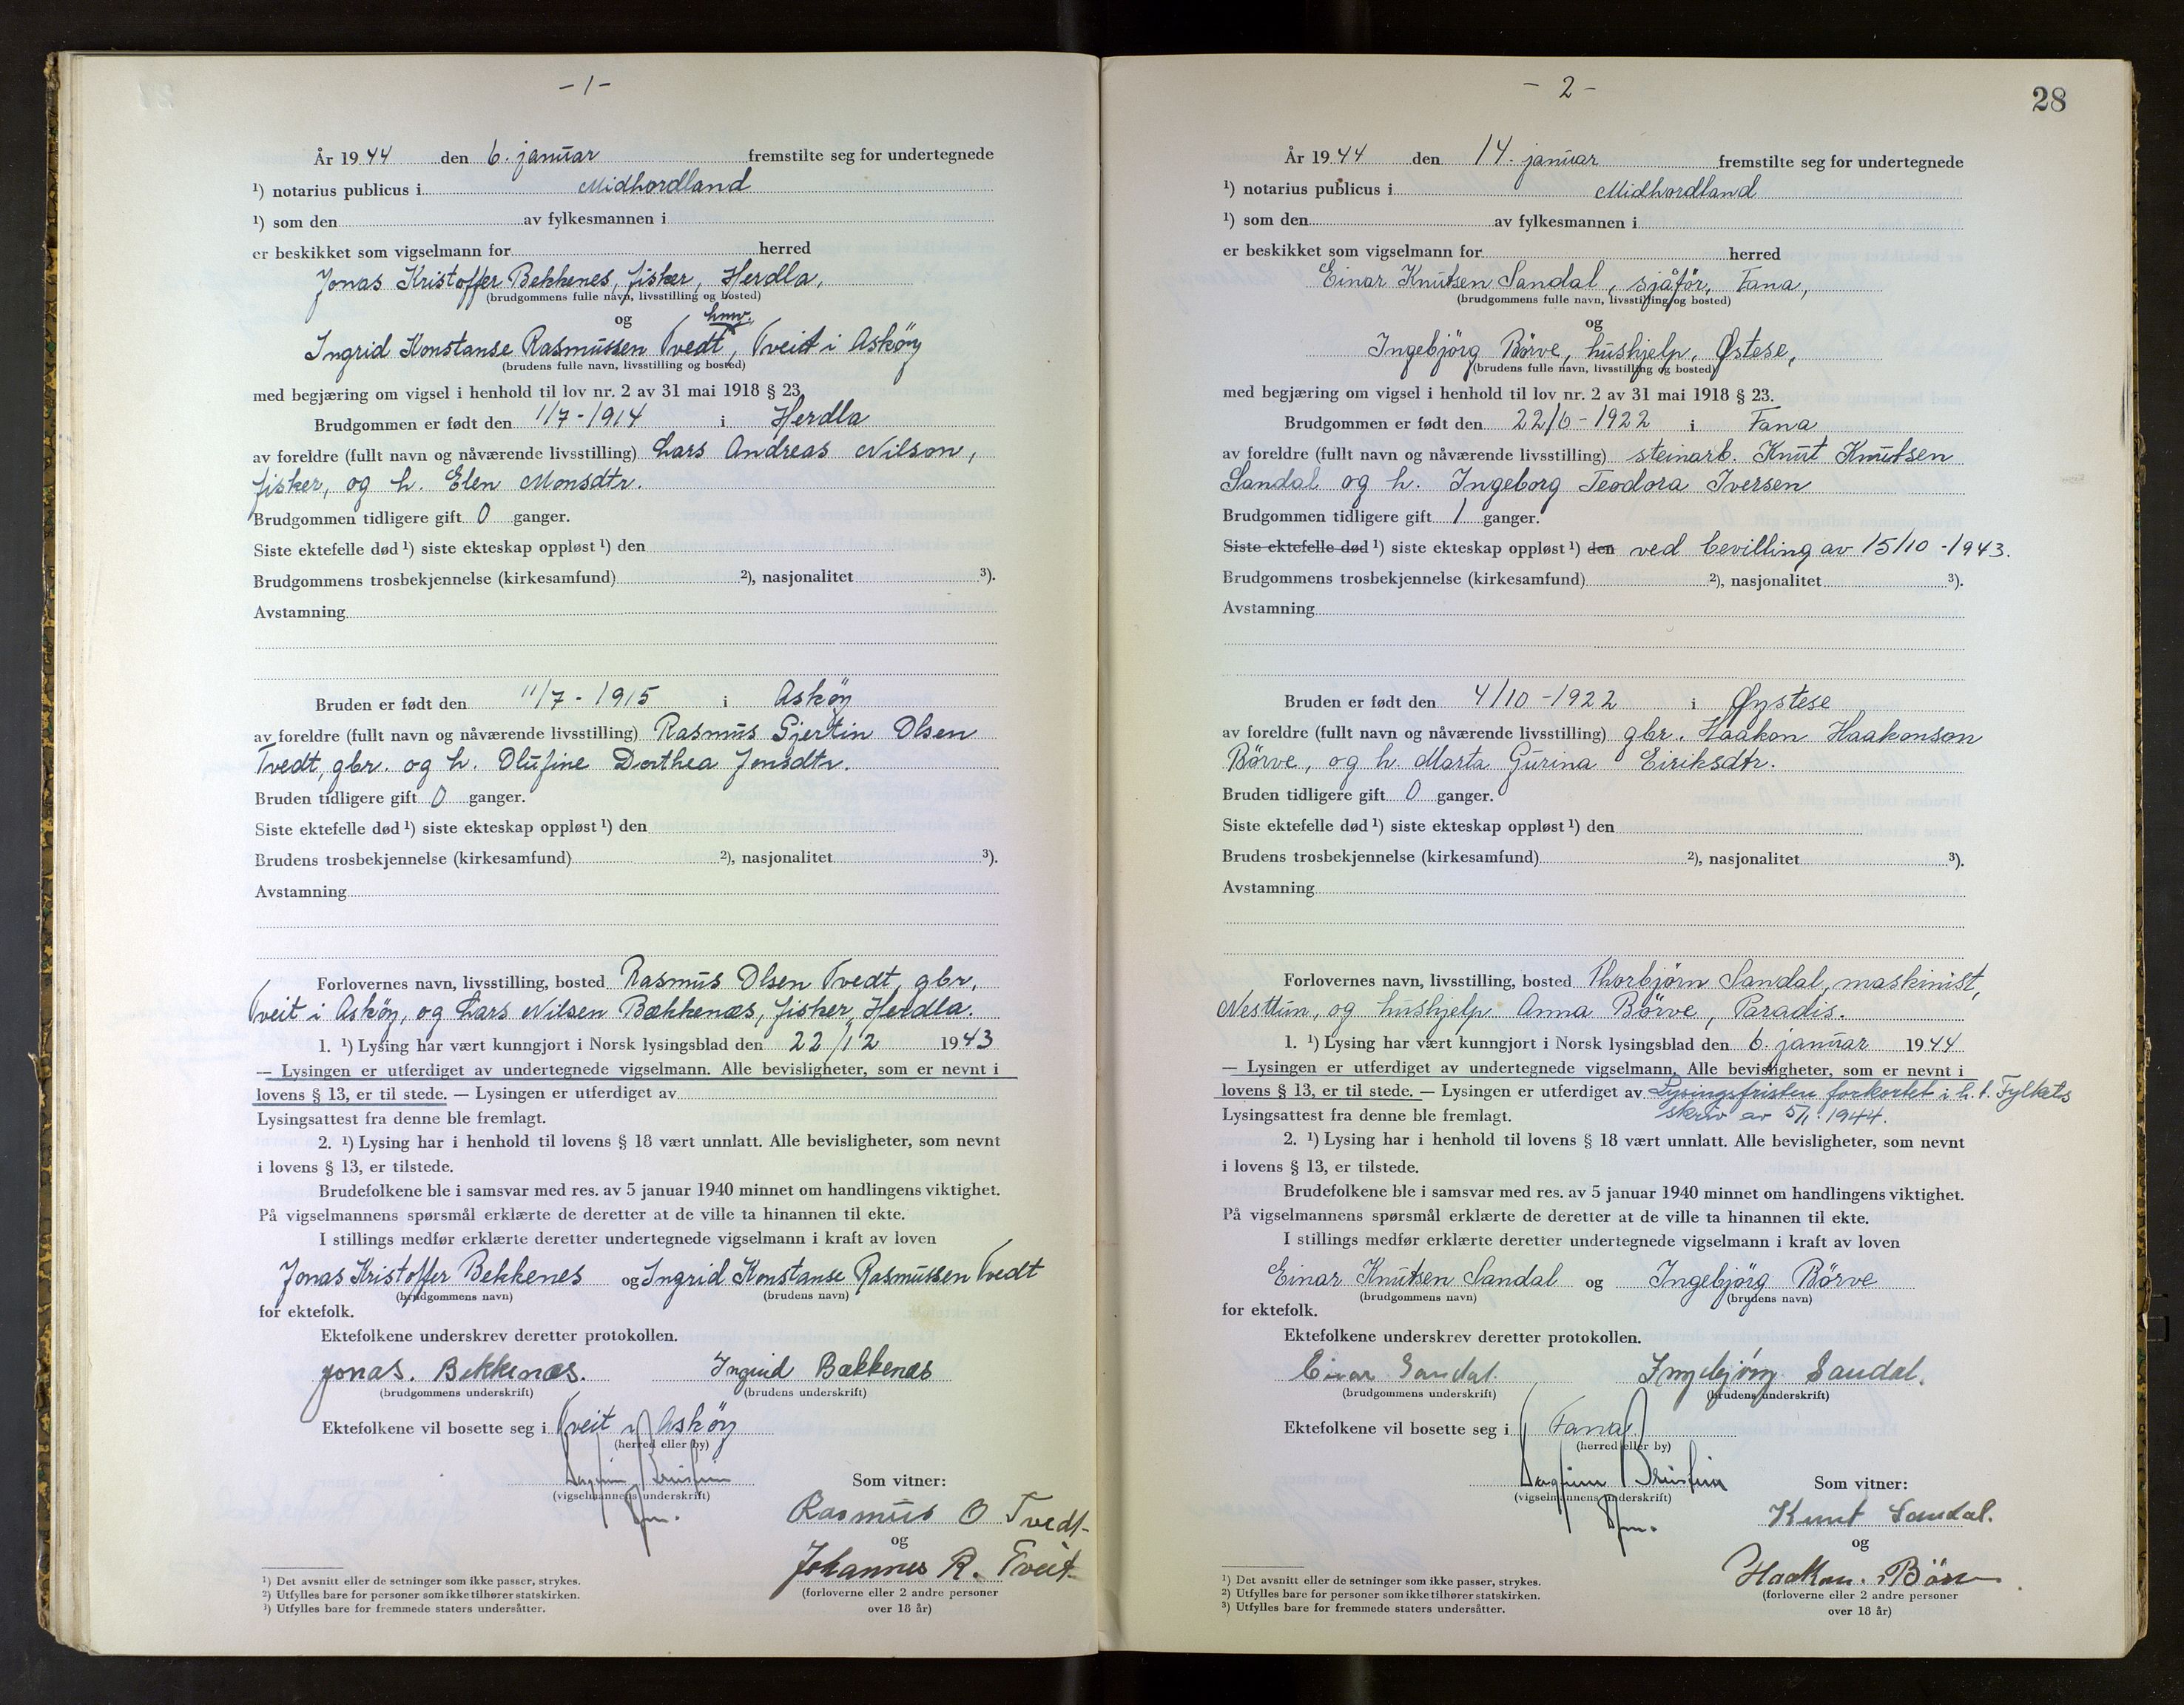 - 1 -
År 1944 den 6. januar fremstilte seg for undertegnede
¹) notarius publicus i Midhordland
¹) som den av fylkesmannen i
er beskikket som vigselmann for herred
Jonas Kristoffer Bekkenes, fisker, Herdla,
(brudgommens fulle navn, livsstilling og bosted)
og
hmv.
Ingrid Konstanse Rasmussen Tvedt, Tveit i Asköy
(brudens fulle navn, livsstilling og bosted)
med begjæring om vigsel i henhold til lov nr. 2 av 31 mai 1918 § 23.
Brudgommen er født den 1/7 - 1914 i Herdla
av foreldre (fullt navn og nåværende livsstilling) Lars Andreas Nilson,
fisker, og h. Elen Monsdtr.
Brudgommen tidligere gift 0 ganger.
Siste ektefelle død ¹) siste ekteskap oppløst ¹) den
Brudgommens trosbekjennelse (kirkesamfund) ²), nasjonalitet ³).
Avstamning
Bruden er født den 11/7 - 1915 i Asköy
av foreldre (fullt navn og nåværende livsstilling) Rasmus Gjertin Olsen
Tvedt, gbr. og h. Olufine Dorthea Jonsdtr.
Bruden tidligere gift 0 ganger.
Siste ektefelle død ¹) siste ekteskap oppløst ¹) den
Brudens trosbekjennelse (kirkesamfund) ²), nasjonalitet ³).
Avstamning
Forlovernes navn, livsstilling, bosted Rasmus Olsen Tvedt, gbr,
Tveit i Asköy, og Lars Nilsen Bækkenæs, fisker, Herdla.
1. ¹) Lysing har vært kunngjort i Norsk lysingsblad den 22/12 1943
— Lysingen er utferdiget av undertegnede vigselmann. Alle bevisligheter, som er nevnt i
lovens § 13, er til stede. — Lysingen er utferdiget av
Lysingsattest fra denne ble fremlagt.
2. ¹) Lysing har i henhold til lovens § 18 vært unnlatt. Alle bevisligheter, som nevnt
i lovens § 13, er tilstede.
Brudefolkene ble i samsvar med res. av 5 januar 1940 minnet om handlingens viktighet.
På vigselmannens spørsmål erklærte de deretter at de ville ta hinannen til ekte.
I stillings medfør erklærte deretter undertegnede vigselmann i kraft av loven
Jonas Kristoffer Bekkenes og Ingrid Konstanse Rasmussen Tvedt
(brudgommens navn) (brudens navn)
for ektefolk.
Ektefolkene underskrev deretter protokollen.
Jonas. Bekkenæs. Ingrid Bækkenæs
(brudgommens underskrift) (brudens underskrift)
Ektefolkene vil bosette seg i Tveit i Asköy
(herred eller by)
(vigselmannens underskrift)
Som vitner:
Rasmus O Tvedt
og
Johannes R. Tveit
(forloverne eller 2 andre personer
over 18 år)
¹) Det avsnitt eller de setninger som ikke passer, strykes.
²) Utfylles bare for personer som ikke tilhører statskirken.
³) Utfylles bare for fremmede staters undersåtter.
- 2 -
28
År 1944 den 14. januar fremstilte seg for undertegnede
¹) notarius publicus i Midhordland
¹) som den av fylkesmannen i
er beskikket som vigselmann for herred
Einar Knutsen Sandal, sjåför, Fana,
(brudgommens fulle navn, livsstilling og bosted)
og
Ingebjörg Börve, hushjelp, Østese,
(brudens fulle navn, livsstilling og bosted)
med begjæring om vigsel i henhold til lov nr. 2 av 31 mai 1918 § 23.
Brudgommen er født den 22/6 - 1922 i Fana
av foreldre (fullt navn og nåværende livsstilling) steinarb. Knut Knutsen
Sandal og h. Ingeborg Teodora Iversen
Brudgommen tidligere gift 1 ganger.
Siste ektefelle død ¹) siste ekteskap oppløst ¹) den ved bevilling av 15/10 - 1943.
Brudgommens trosbekjennelse (kirkesamfund) ²), nasjonalitet ³).
Avstamning
Bruden er født den 4/10 - 1922 i Øystese
av foreldre (fullt navn og nåværende livsstilling) gbr. Haakon Haakonson
Börve, og h. Marta Gurina Eiriksdtr.
Bruden tidligere gift 0 ganger.
Siste ektefelle død ¹) siste ekteskap oppløst ¹) den
Brudens trosbekjennelse (kirkesamfund) ²), nasjonalitet ³).
Avstamning
Forlovernes navn, livsstilling, bosted Thorbjörn Sandal, maskinist,
Nesttun, og hushjelp Anna Börve, Paradis.
1. ¹) Lysing har vært kunngjort i Norsk lysingsblad den 6. januar 1944
— Lysingen er utferdiget av undertegnede vigselmann. Alle bevisligheter, som er nevnt i
lovens § 13, er til stede. — Lysingen er utferdiget av Lysingsfristen forkortet i h. t. Fylkets
Lysingsattest fra denne ble fremlagt. skriv av 5/1. 1944.
2. ¹) Lysing har i henhold til lovens § 18 vært unnlatt. Alle bevisligheter, som nevnt
i lovens § 13, er tilstede.
Brudefolkene ble i samsvar med res. av 5 januar 1940 minnet om handlingens viktighet.
På vigselmannens spørsmål erklærte de deretter at de ville ta hinannen til ekte.
I stillings medfør erklærte deretter undertegnede vigselmann i kraft av loven
Einar Knutsen Sandal og Ingebjörg Börve
(brudgommens navn) (brudens navn)
for ektefolk.
Ektefolkene underskrev deretter protokollen.
Einar Sandal. Ingebjörg Sandal.
(brudgommens underskrift) (brudens underskrift)
Ektefolkene vil bosette seg i Fana
(herred eller by)
(vigselmannens underskrift)
Som vitner:
Knut Sandal.
og
Haakon. Börve
(forloverne eller 2 andre personer
over 18 år)
¹) Det avsnitt eller de setninger som ikke passer, strykes.
²) Utfylles bare for personer som ikke tilhører statskirken.
³) Utfylles bare for fremmede staters undersåtter.